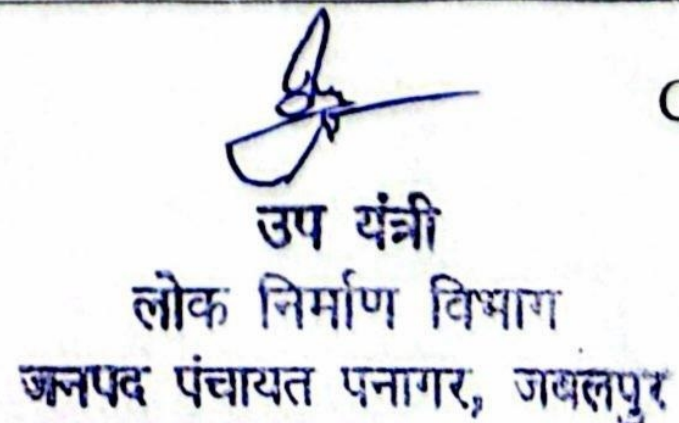 उप यंत्री
लोक निर्माण विभाग
जनपद पंचायत पनागर, जबलपुर